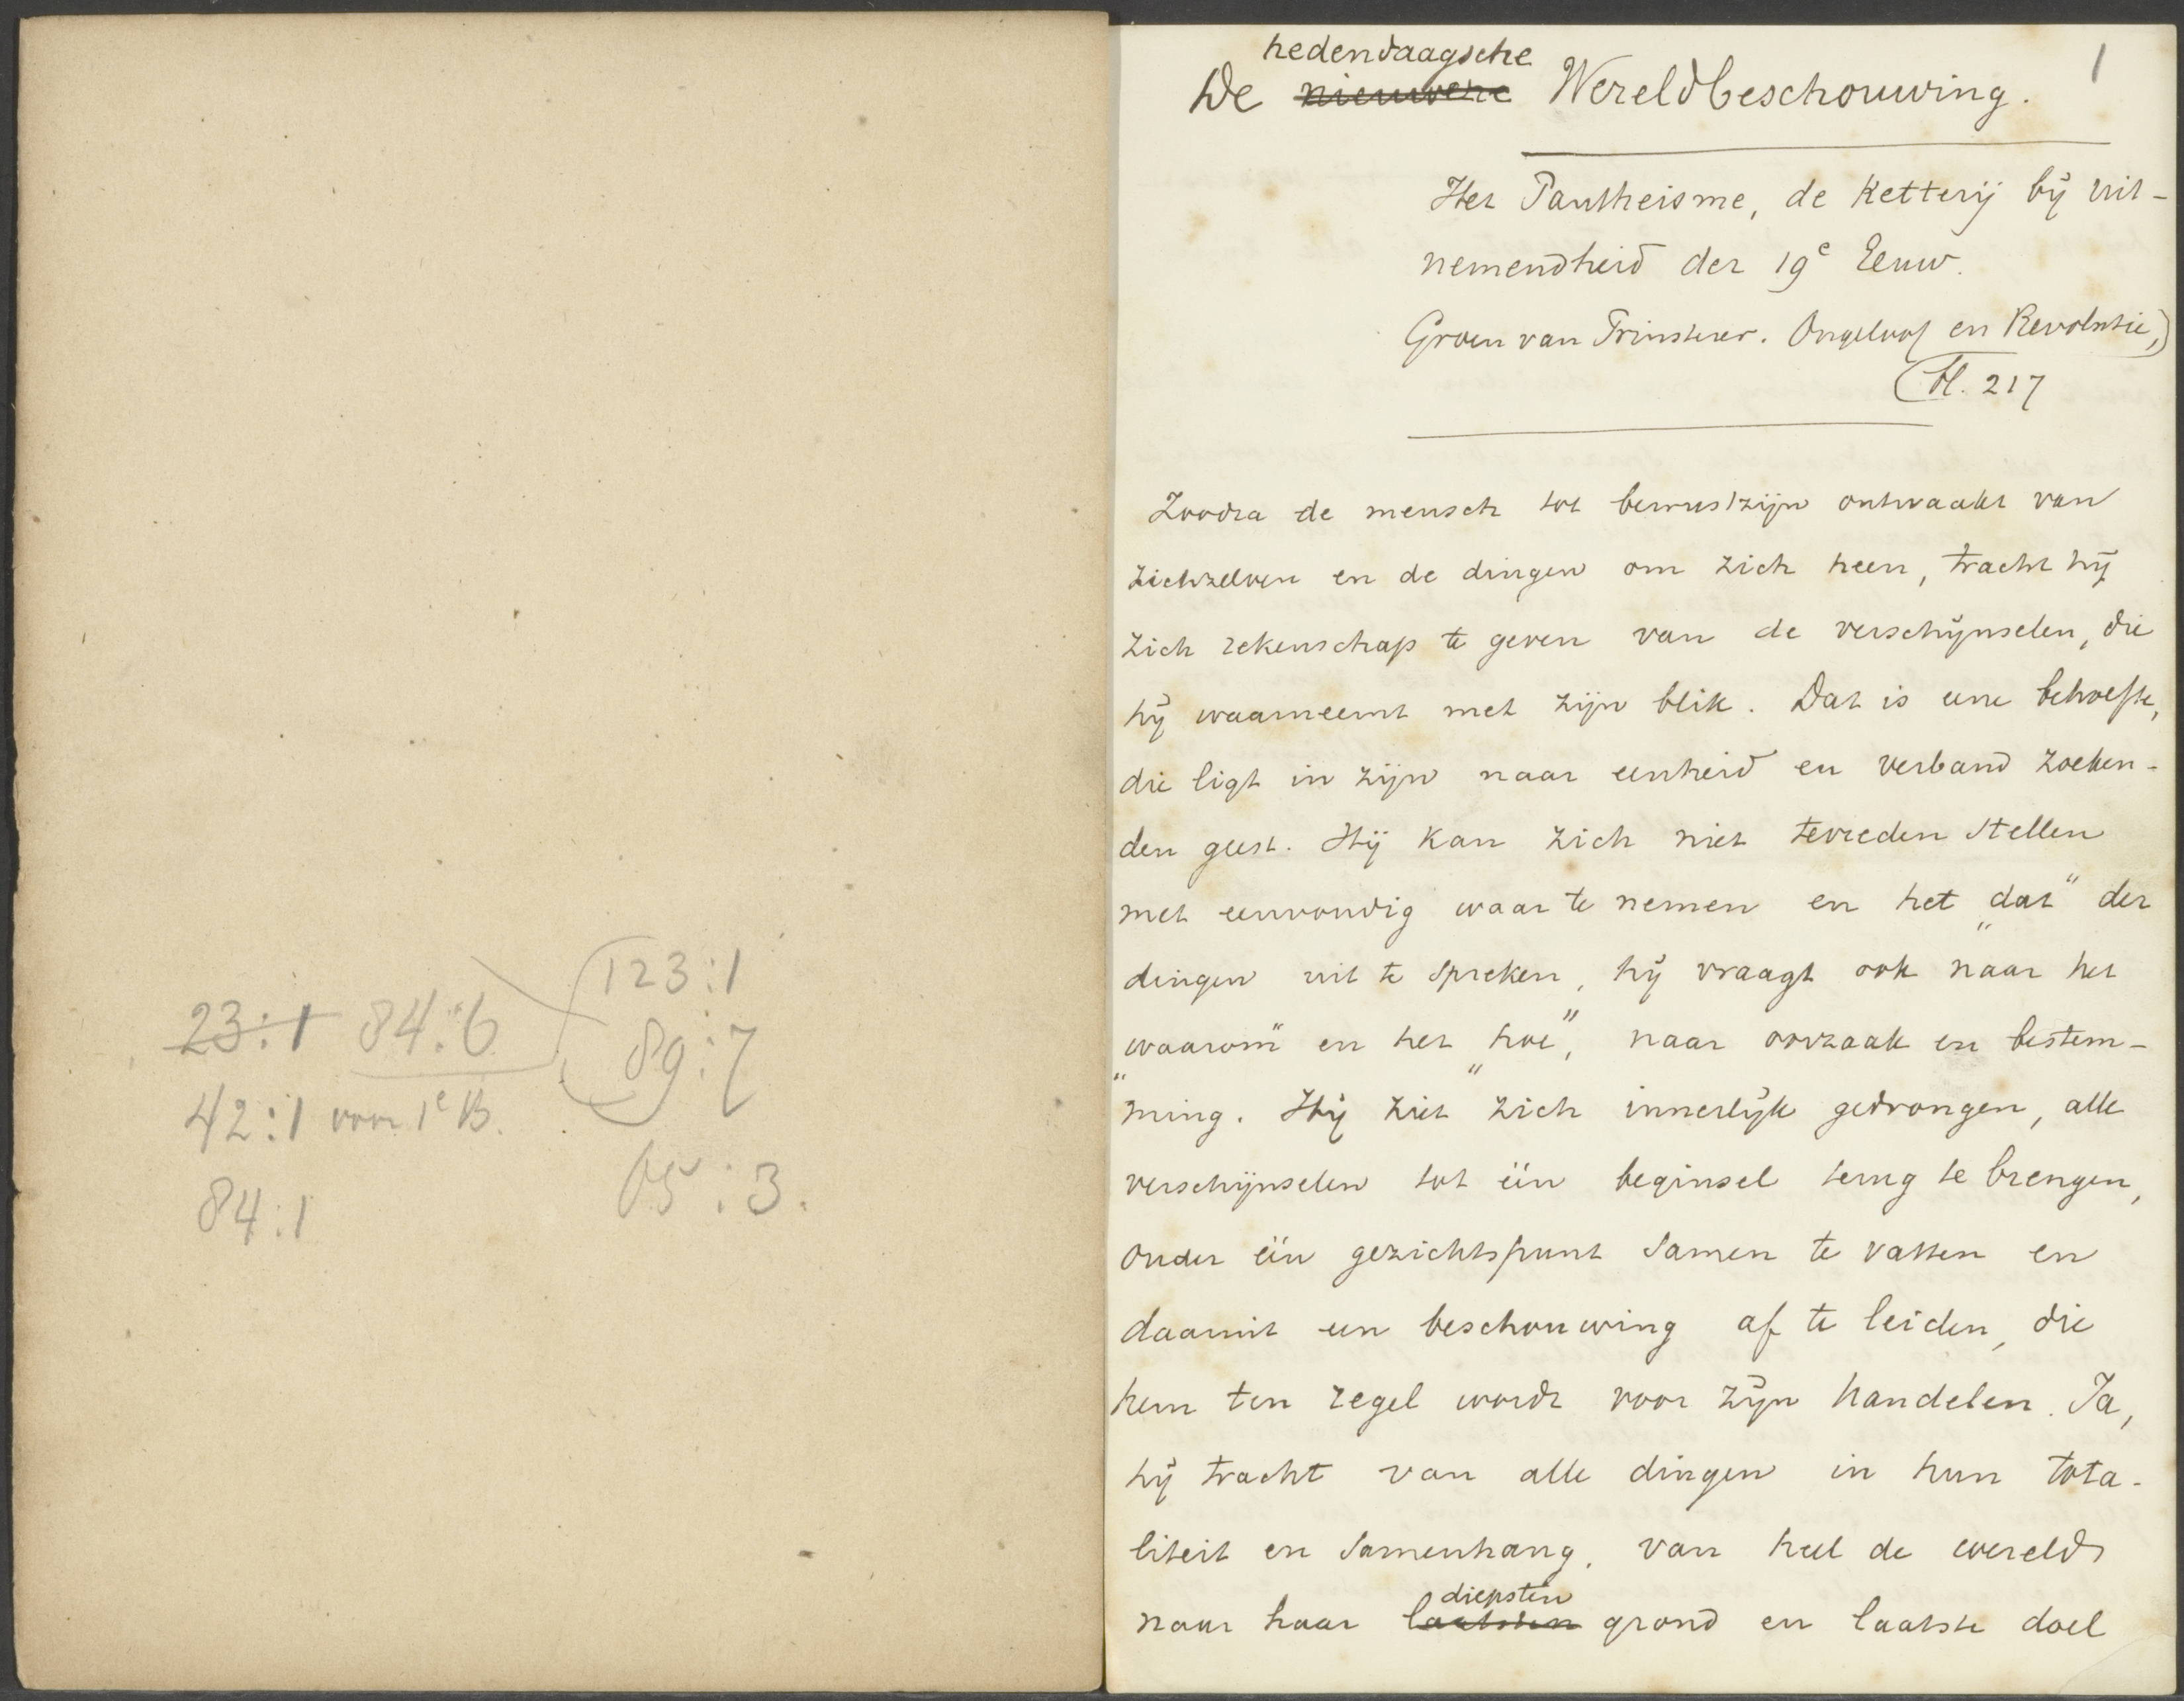 123:1
23:1 84:6
89:7
42:1 voor 1e B.
65:3.
84:1
1
hedendaagsche
De nieuwere Wereldbeschouwing.
Het Pantheisme, de Ketterij bij uit-
nemendheid der 19e Eeuw.
Groen van Prinsterer. Ongeloof en Revolutie,)
(bl. 217
Zoodra de mensch tot bewustzijn ontwaakt van
zichzelven en de dingen om zich heen, tracht hij
zich rekenschap te geven van de verschijnselen, die
hij waarneemt met zijn blik. Dat is eene behoefte,
die ligt in zijn naar eenheid en verband zoeken-
den geest. Hij kan zich niet tevreden stellen
met eenvoudig waar te nemen en het „dat" der
dingen uit te spreken, hij vraagt ook naar het
„waarom" en het „hoe", naar oorzaak en bestem-
ming. Hij ziet zich innerlijk gedrongen, alle
verschijnselen tot één beginsel terug te brengen,
onder één gezichtspunt samen te vatten en
daaruit een beschouwing af te leiden, die
hem ten regel wordt voor zijn handelen. Ja,
hij tracht van alle dingen in hun tota-
liteit en samenhang, van heel de wereld
diepsten
naar haar laatsten grond en laatste doel